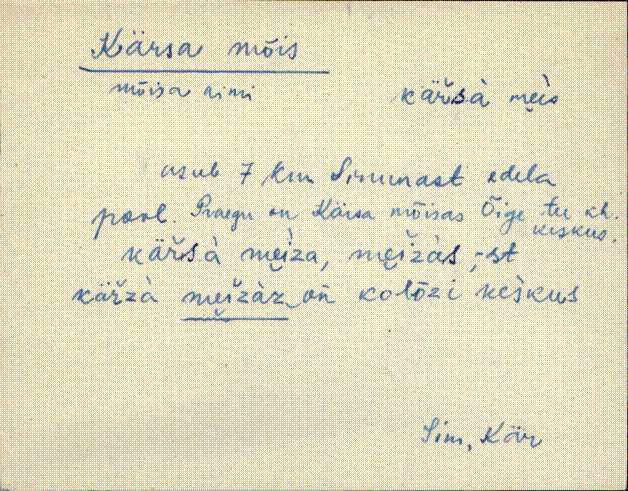 Kärsa mõis
mõisa nimi
käřsà męìs
asub 7 km Simunast edela
pool. Praegu on Kärsa mõisas Õige tee kh.
keskus.
käřsà męìza, męižàs, -st
käřzà męižàz on kolōzi kèskus
Sim, Kär